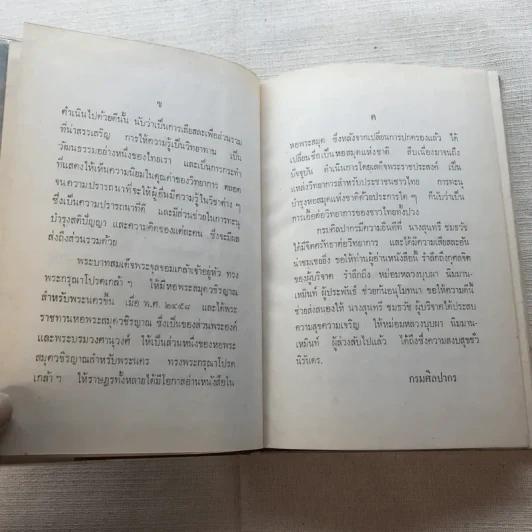 ข
ดำเนินไปด้วยดีนั้น นับว่าเป็นการเสียสละเพื่อส่วนรวม
ที่น่าสรรเสริญ การให้ความรู้เป็นวิทยาทาน เป็น
วัฒนธรรมอย่างหนึ่งของไทยเรา และเป็นการกระทำ
ที่แสดงให้เห็นความนิยมในคุณค่าของวิทยาการ ตลอด
จนความปรารถนาที่จะให้ผู้อื่นมีความรู้ในวิชาต่าง ๆ
ซึ่งเป็นความปรารถนาที่ดี และมีส่วนช่วยในการทะนุ
บำรุงสติปัญญา และความคิดของแต่ละคน ซึ่งจะมีผล
ส่งถึงส่วนรวมด้วย
พระบาทสมเด็จพระจุลจอมเกล้าเจ้าอยู่หัว ทรง
พระกรุณาโปรดเกล้า ฯ ให้มีหอพระสมุดวชิรญาณ
สำหรับพระนครขึ้น เมื่อ พ.ศ. ๒๔๕๘ และได้พระ
ราชทานหอพระสมุดวชิรญาณ ซึ่งเป็นของส่วนพระองค์
และพระบรมวงศานุวงศ์ ให้เป็นส่วนหนึ่งของหอพระ
สมุดวชิรญาณสำหรับพระนคร ทรงพระกรุณาโปรด
เกล้า ฯ ให้ราษฎรทั้งหลายได้มีโอกาสอ่านหนังสือใน
ค
หอพระสมุด ซึ่งหลังจากเปลี่ยนการปกครองแล้ว ได้
เปลี่ยนชื่อเป็นหอสมุดแห่งชาติ สืบเนื่องมาจนถึง
ปัจจุบัน ดำเนินการโดยเสด็จพระราชประสงค์ เป็น
แหล่งวิทยาการสำหรับประชาชนชาวไทย การทะนุ
บำรุงหอสมุดแห่งชาติด้วยประการใด ๆ ก็นับว่าเป็น
การเอื้อต่อวิทยาการของชาวไทยทั้งปวง
กรมศิลปากรมีความยินดีที่ นางสุนทรี ชมธวัช
ได้มีจิตศรัทธาต่อวิทยาการ และได้มีความเสียสละอัน
น่าชมเชยยิ่ง ขอให้ท่านผู้อ่านหนังสือนี้ รำลึกถึงกุศลจิต
ของผู้บริจาค รำลึกถึง หม่อมหลวงบุปผา นิมมาน-
เหมินท์ ผู้ประพันธ์ ช่วยกันอนุโมทนา ขอให้ความดีนี้
ช่วยสนองให้ นางสุนทรี ชมธวัช ผู้บริจาคได้ประสบ
ความสุขความเจริญ ให้หม่อมหลวงบุปผา นิมมาน-
เหมินท์ ผู้ล่วงลับไปแล้ว ได้ถึงซึ่งความสงบสุขชั่ว
นิรันดร.
กรมศิลปากร